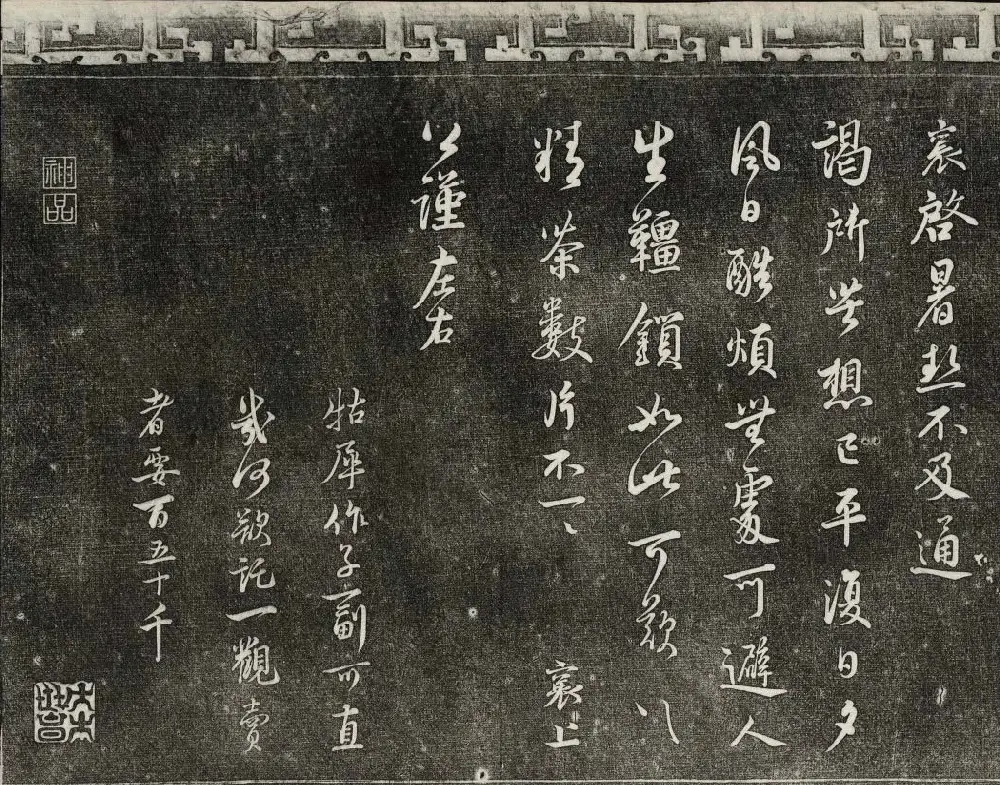 襄啓暑熱不及通
謁所苦想已平復日夕
風日酷煩無處可避人
生韁鎖如此可歎八
精茶數片不一一 襄上
公謹左右
牯犀作子一副可直
幾何欲託一觀賣
者要百五十千
神品